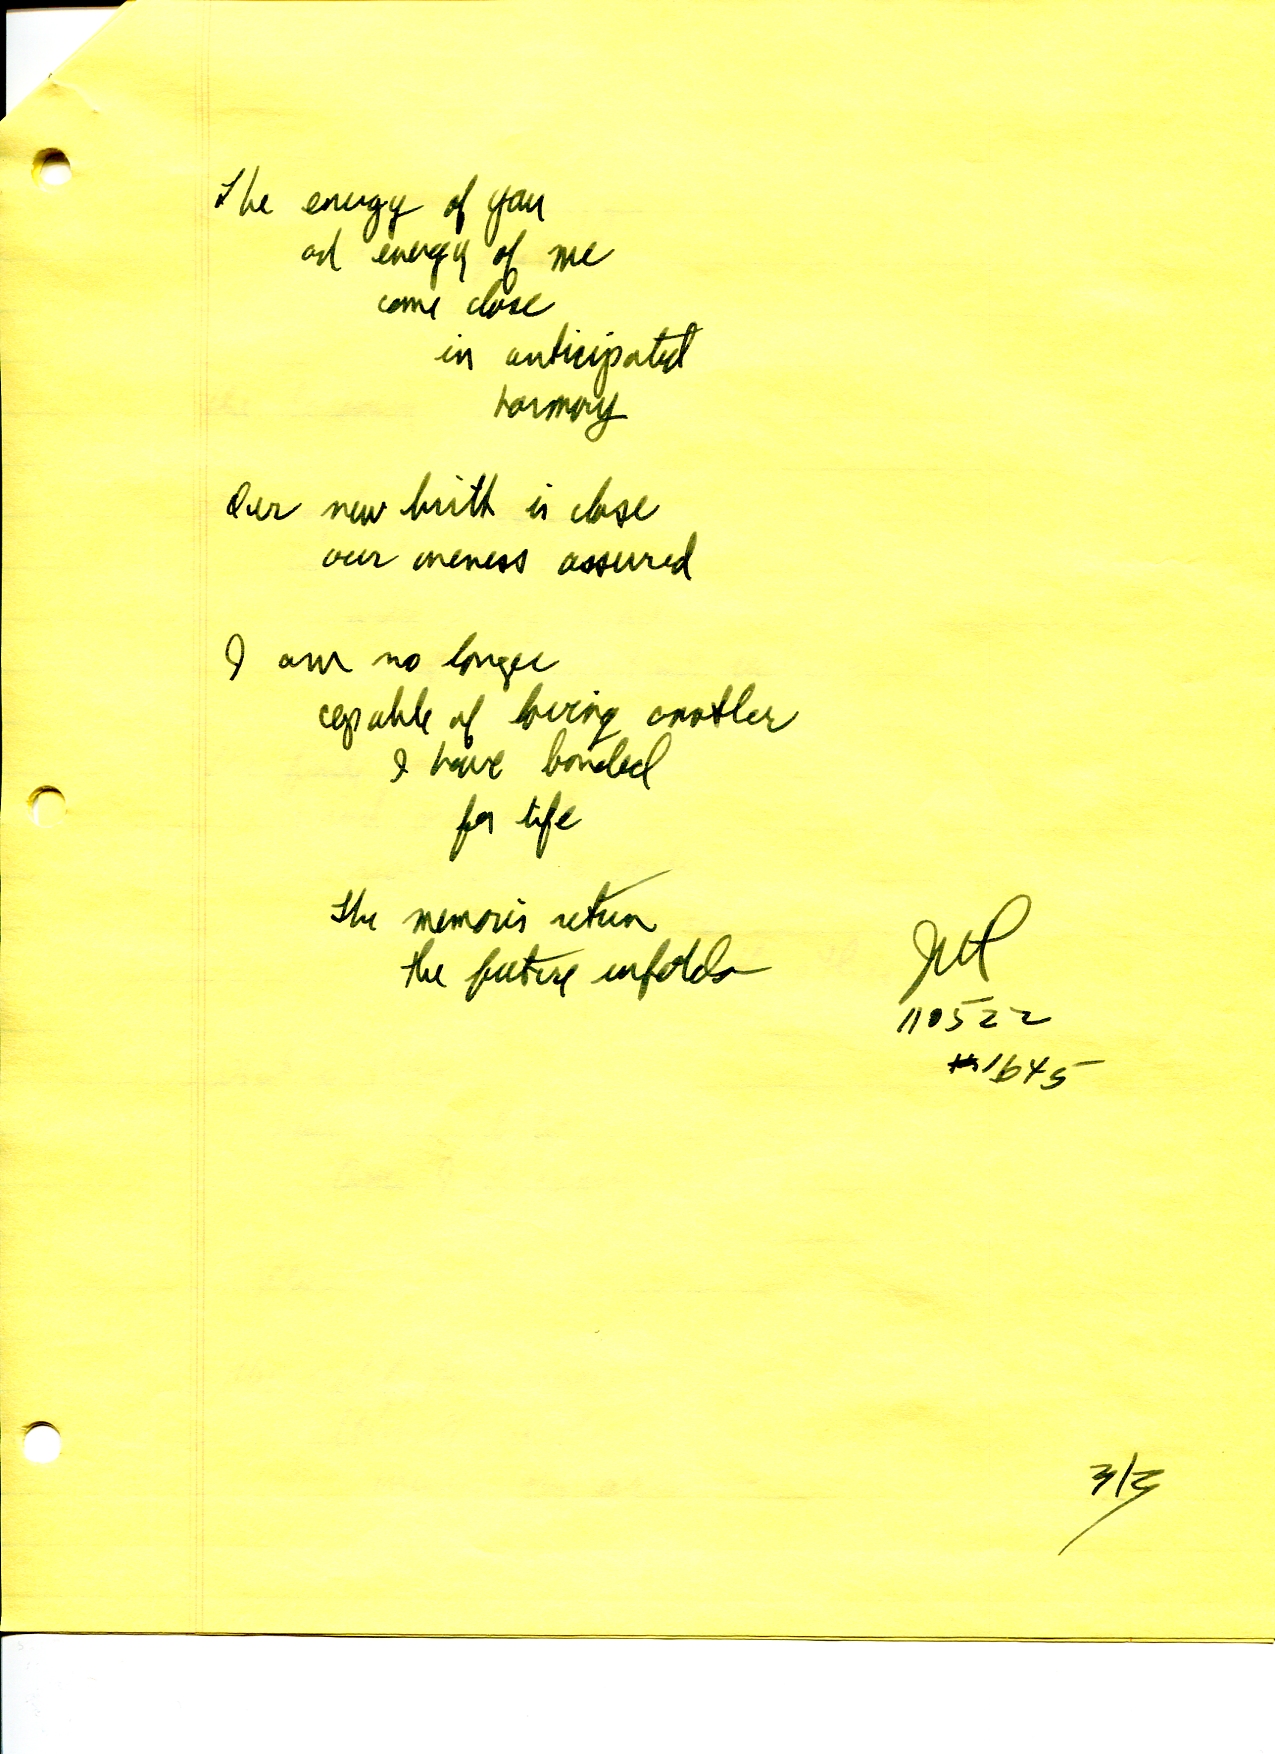 The energy of you
and energy of me
come close
in anticipated
harmony
Our new birth is close
our oneness assured
I am no longer
capable of loving another
I have bonded
for life
the memories return
the future unfolds
110522
#1645
3/3